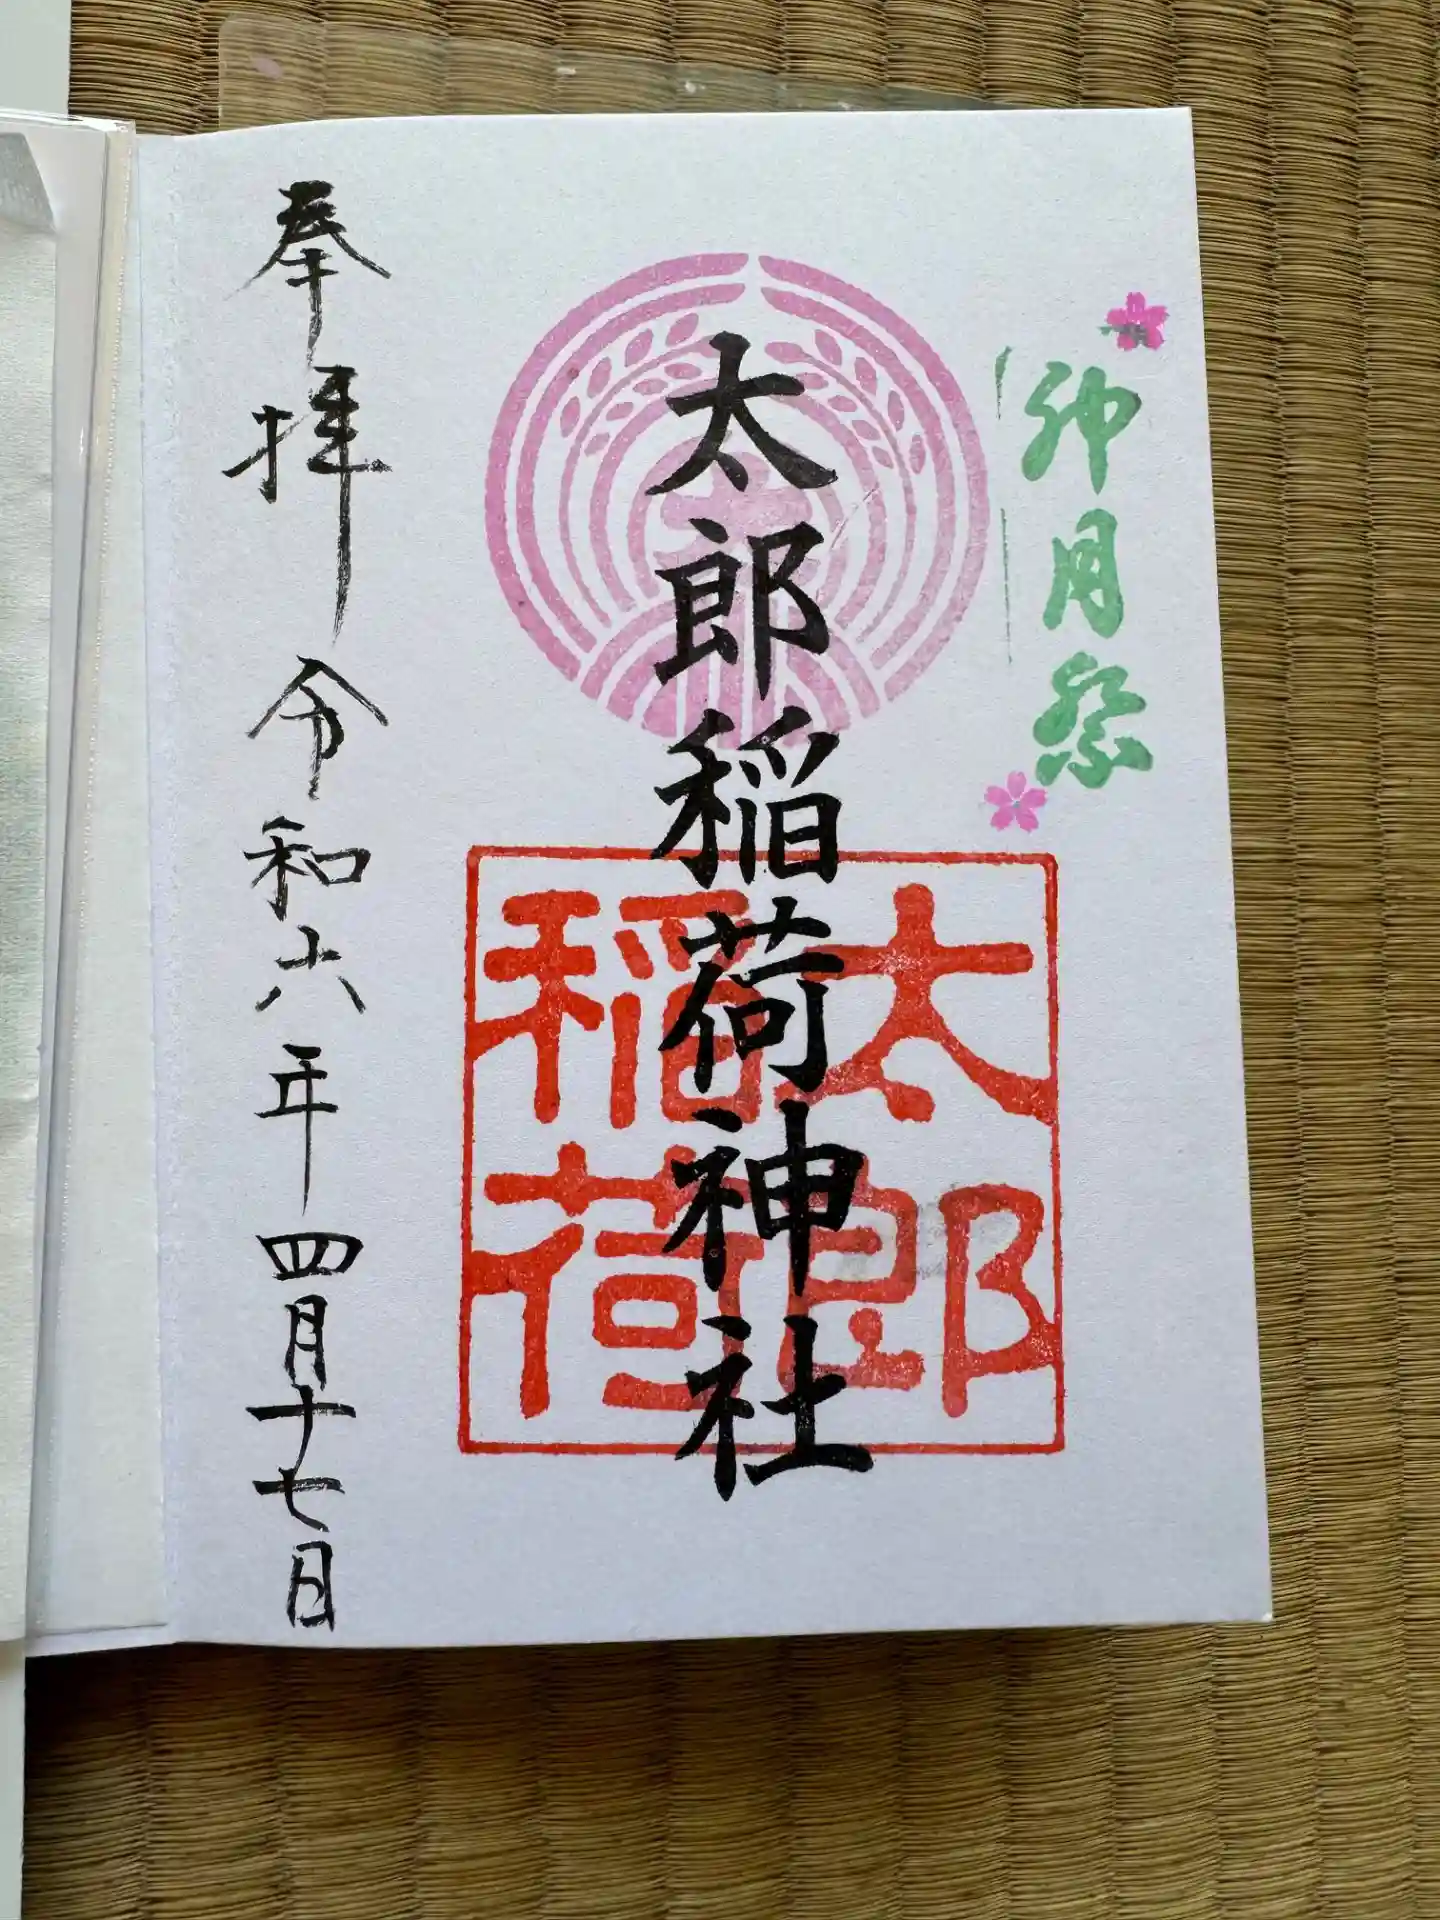 卯月祭
太郎稲荷神社
太郎
稲荷
奉拝
令和六年四月十七日